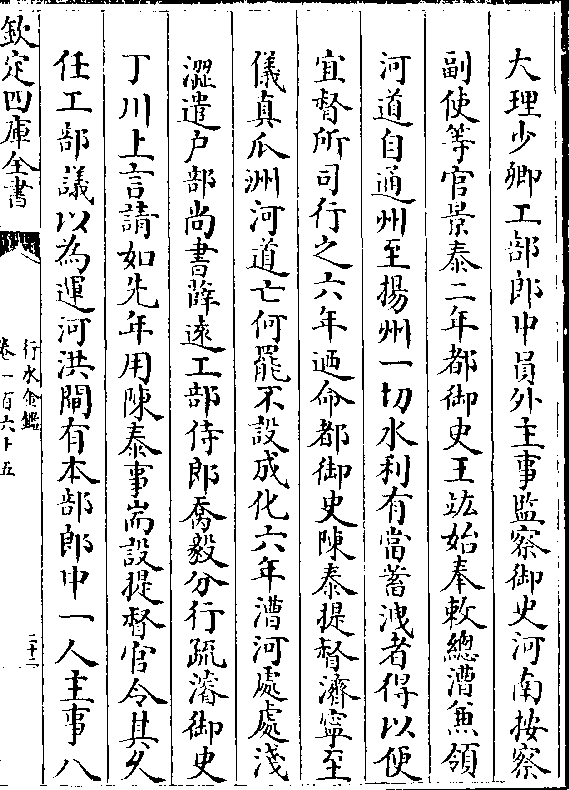 大理少卿工部郎中員外主事監察御史河南按察
副使等官景泰二年都御史王竑始奉敕總漕兼領
河道自通州至揚州一切水利有當蓄洩者得以便
宜督所司行之六年廼命都御史陳泰提督濟寧至
儀真瓜洲河道亡何罷不設成化六年漕河處處淺
澀遣户部尚書薛遠工部侍郎喬毅分行疏濬御史
丁川上言請如先年用陳泰事耑設提督官令其久
任工部議以為運河洪閘有本部郎中一人主事八
欽定四庫全書
行水金鑑
卷一百六十五
二十二